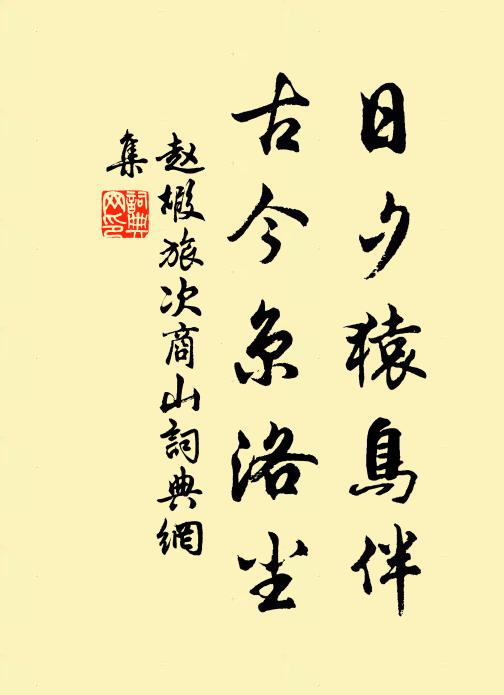 日夕猿鳥伴
古今京洛尘
赵嘏旅次商山詞典網
集
詞典
网印